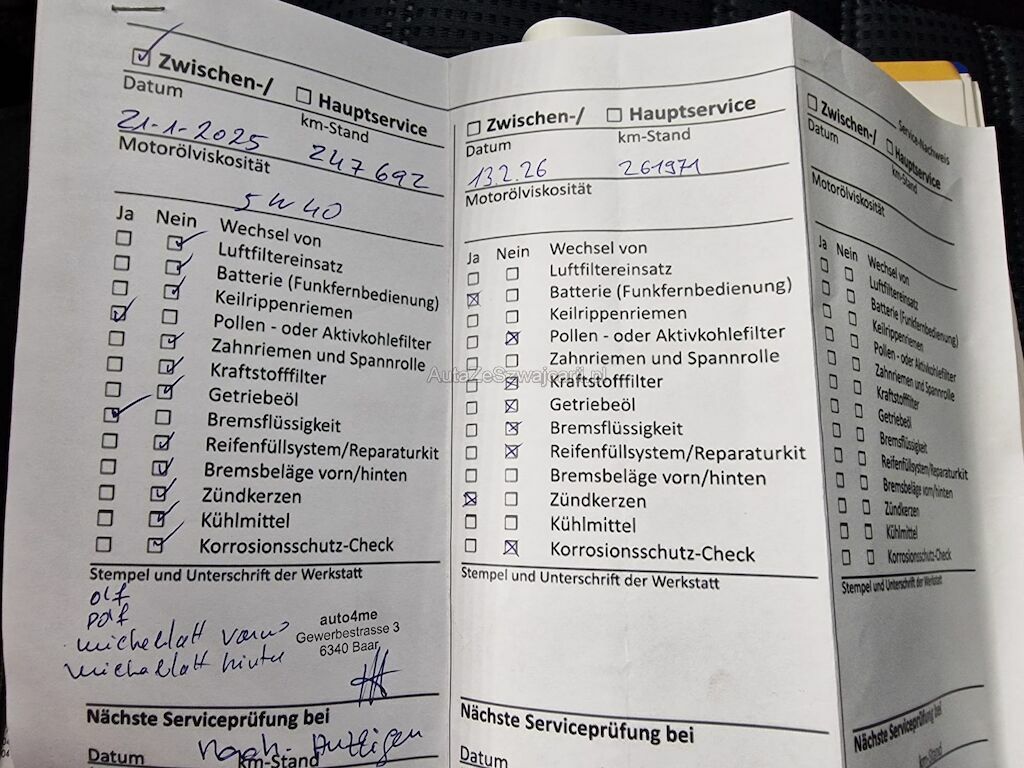 Zwischen-/ Hauptservice
Datum km-Stand
21-1-2025 247692
Motorölviskosität
5W40
Ja Nein Wechsel von
Luftfiltereinsatz
Batterie (Funkfernbedienung)
Keilrippenriemen
Pollen - oder Aktivkohlefilter
Zahnriemen und Spannrolle
Kraftstofffilter
Getriebeöl
Bremsflüssigkeit
Reifenfüllsystem/Reparaturkit
Bremsbeläge vorn/hinten
Zündkerzen
Kühlmittel
Korrosionsschutz-Check
Stempel und Unterschrift der Werkstatt
olf
polf
auto4me
Gewerbestrasse 3
6340 Baar
Nächste Serviceprüfung bei
Nach Anzeigen
Datum km-Stand
Zwischen-/ Hauptservice
Datum km-Stand
13.2.26 261971
Motorölviskosität
Ja Nein Wechsel von
Luftfiltereinsatz
Batterie (Funkfernbedienung)
Keilrippenriemen
Pollen - oder Aktivkohlefilter
Zahnriemen und Spannrolle
Kraftstofffilter
Getriebeöl
Bremsflüssigkeit
Reifenfüllsystem/Reparaturkit
Bremsbeläge vorn/hinten
Zündkerzen
Kühlmittel
Korrosionsschutz-Check
Stempel und Unterschrift der Werkstatt
Nächste Serviceprüfung bei
Datum
Service-Nachweis
Zwischen-/ Hauptservice
Datum km-Stand
Motorölviskosität
Ja Nein Wechsel von
Luftfiltereinsatz
Batterie (Funkfernbedienung)
Keilrippenriemen
Pollen - oder Aktivkohlefilter
Zahnriemen und Spannrolle
Kraftstofffilter
Getriebeöl
Bremsflüssigkeit
Reifenfüllsystem/Reparaturkit
Bremsbeläge vorn/hinten
Zündkerzen
Kühlmittel
Korrosionsschutz-Check
Stempel und Unterschrift der Werkstatt
Nächste Serviceprüfung bei
Datum km-Stand
AutaZeSzwajcarii.pl